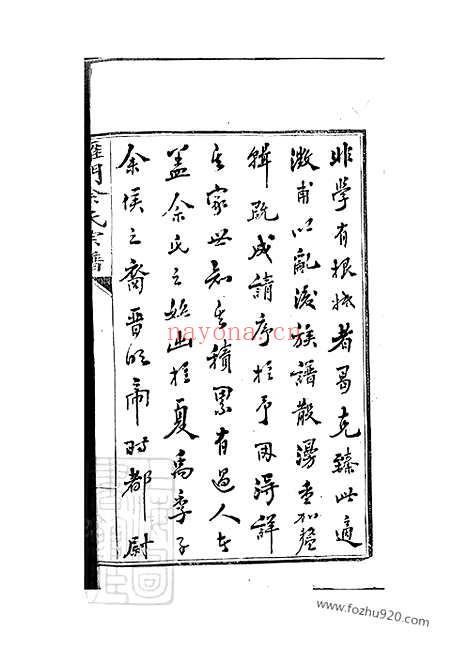 非學有根柢者曷克臻此適
澂甫以亂後族譜散漫重加釐
輯既成請序於予因得詳
其家世知其積累有過人者
蓋余氏之始出於夏禹季子
余侯之裔晉明帝時都尉
雁門余氏宗譜
nayona.cn
www.fozhu920.com